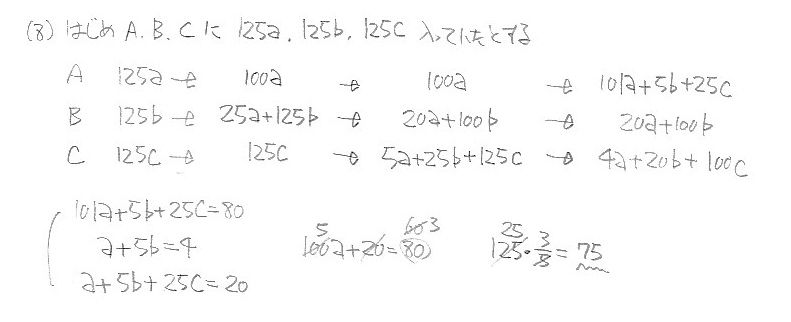 (8) はじめ A.B.C に 125a, 125b, 125c 入っていたとする
A 125a → 100a → 100a → 101a+5b+25c
B 125b → 25a+125b → 20a+100b → 20a+100b
C 125c → 125c → 5a+25b+125c → 4a+20b+100c
101a+5b+25c=80
a+5b=4
a+5b+25c=20
5 60 3
100a+20=80
25
125・3/5=75